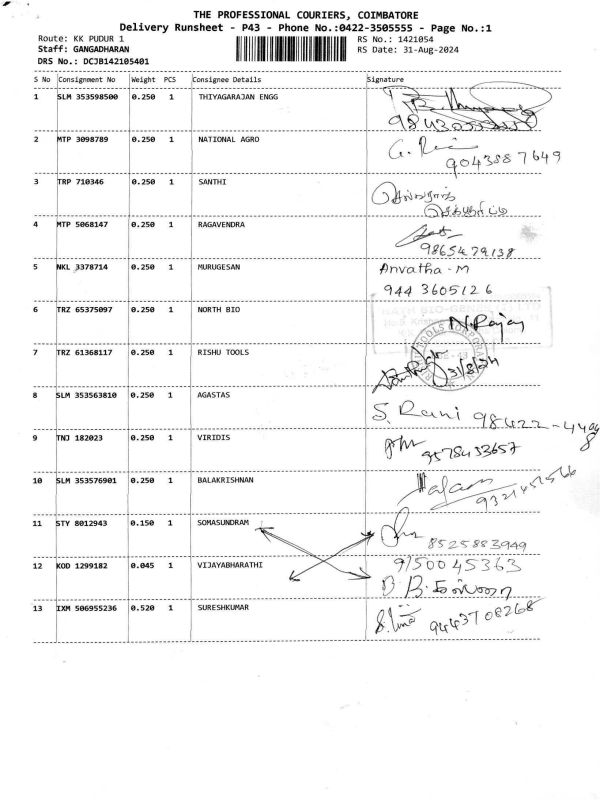 THE PROFESSIONAL COURIERS, COIMBATORE
Delivery Runsheet - P43 - Phone No.:0422-3505555 - Page No.:1
Route: KK PUDUR 1 RS No.: 1421054
Staff: GANGADHARAN RS Date: 31-Aug-2024
DRS No.: DCJB142105401
S No Consignment No Weight PCS Consignee Details Signature
1 SLM 353598500 0.250 1 THIYAGARAJAN ENGG
2 MTP 3098789 0.250 1 NATIONAL AGRO
9043887649
3 TRP 710346 0.250 1 SANTHI
4 MTP 5068147 0.250 1 RAGAVENDRA
9865479138
5 NKL 3378714 0.250 1 MURUGESAN Anvatha - M
944 3605126
6 TRZ 65375097 0.250 1 NORTH BIO N. Rajay
7 TRZ 61368117 0.250 1 RISHU TOOLS
31/8/24
8 SLM 353563810 0.250 1 AGASTAS S. Rani 98422-4406
8
9 TNJ 182023 0.250 1 VIRIDIS
9578433657
10 SLM 353576901 0.250 1 BALAKRISHNAN
11 STY 8012943 0.150 1 SOMASUNDRAM
8525883949
12 KOD 1299182 0.045 1 VIJAYABHARATHI 9150045363
13 IXM 506955236 0.520 1 SURESHKUMAR
9443708268